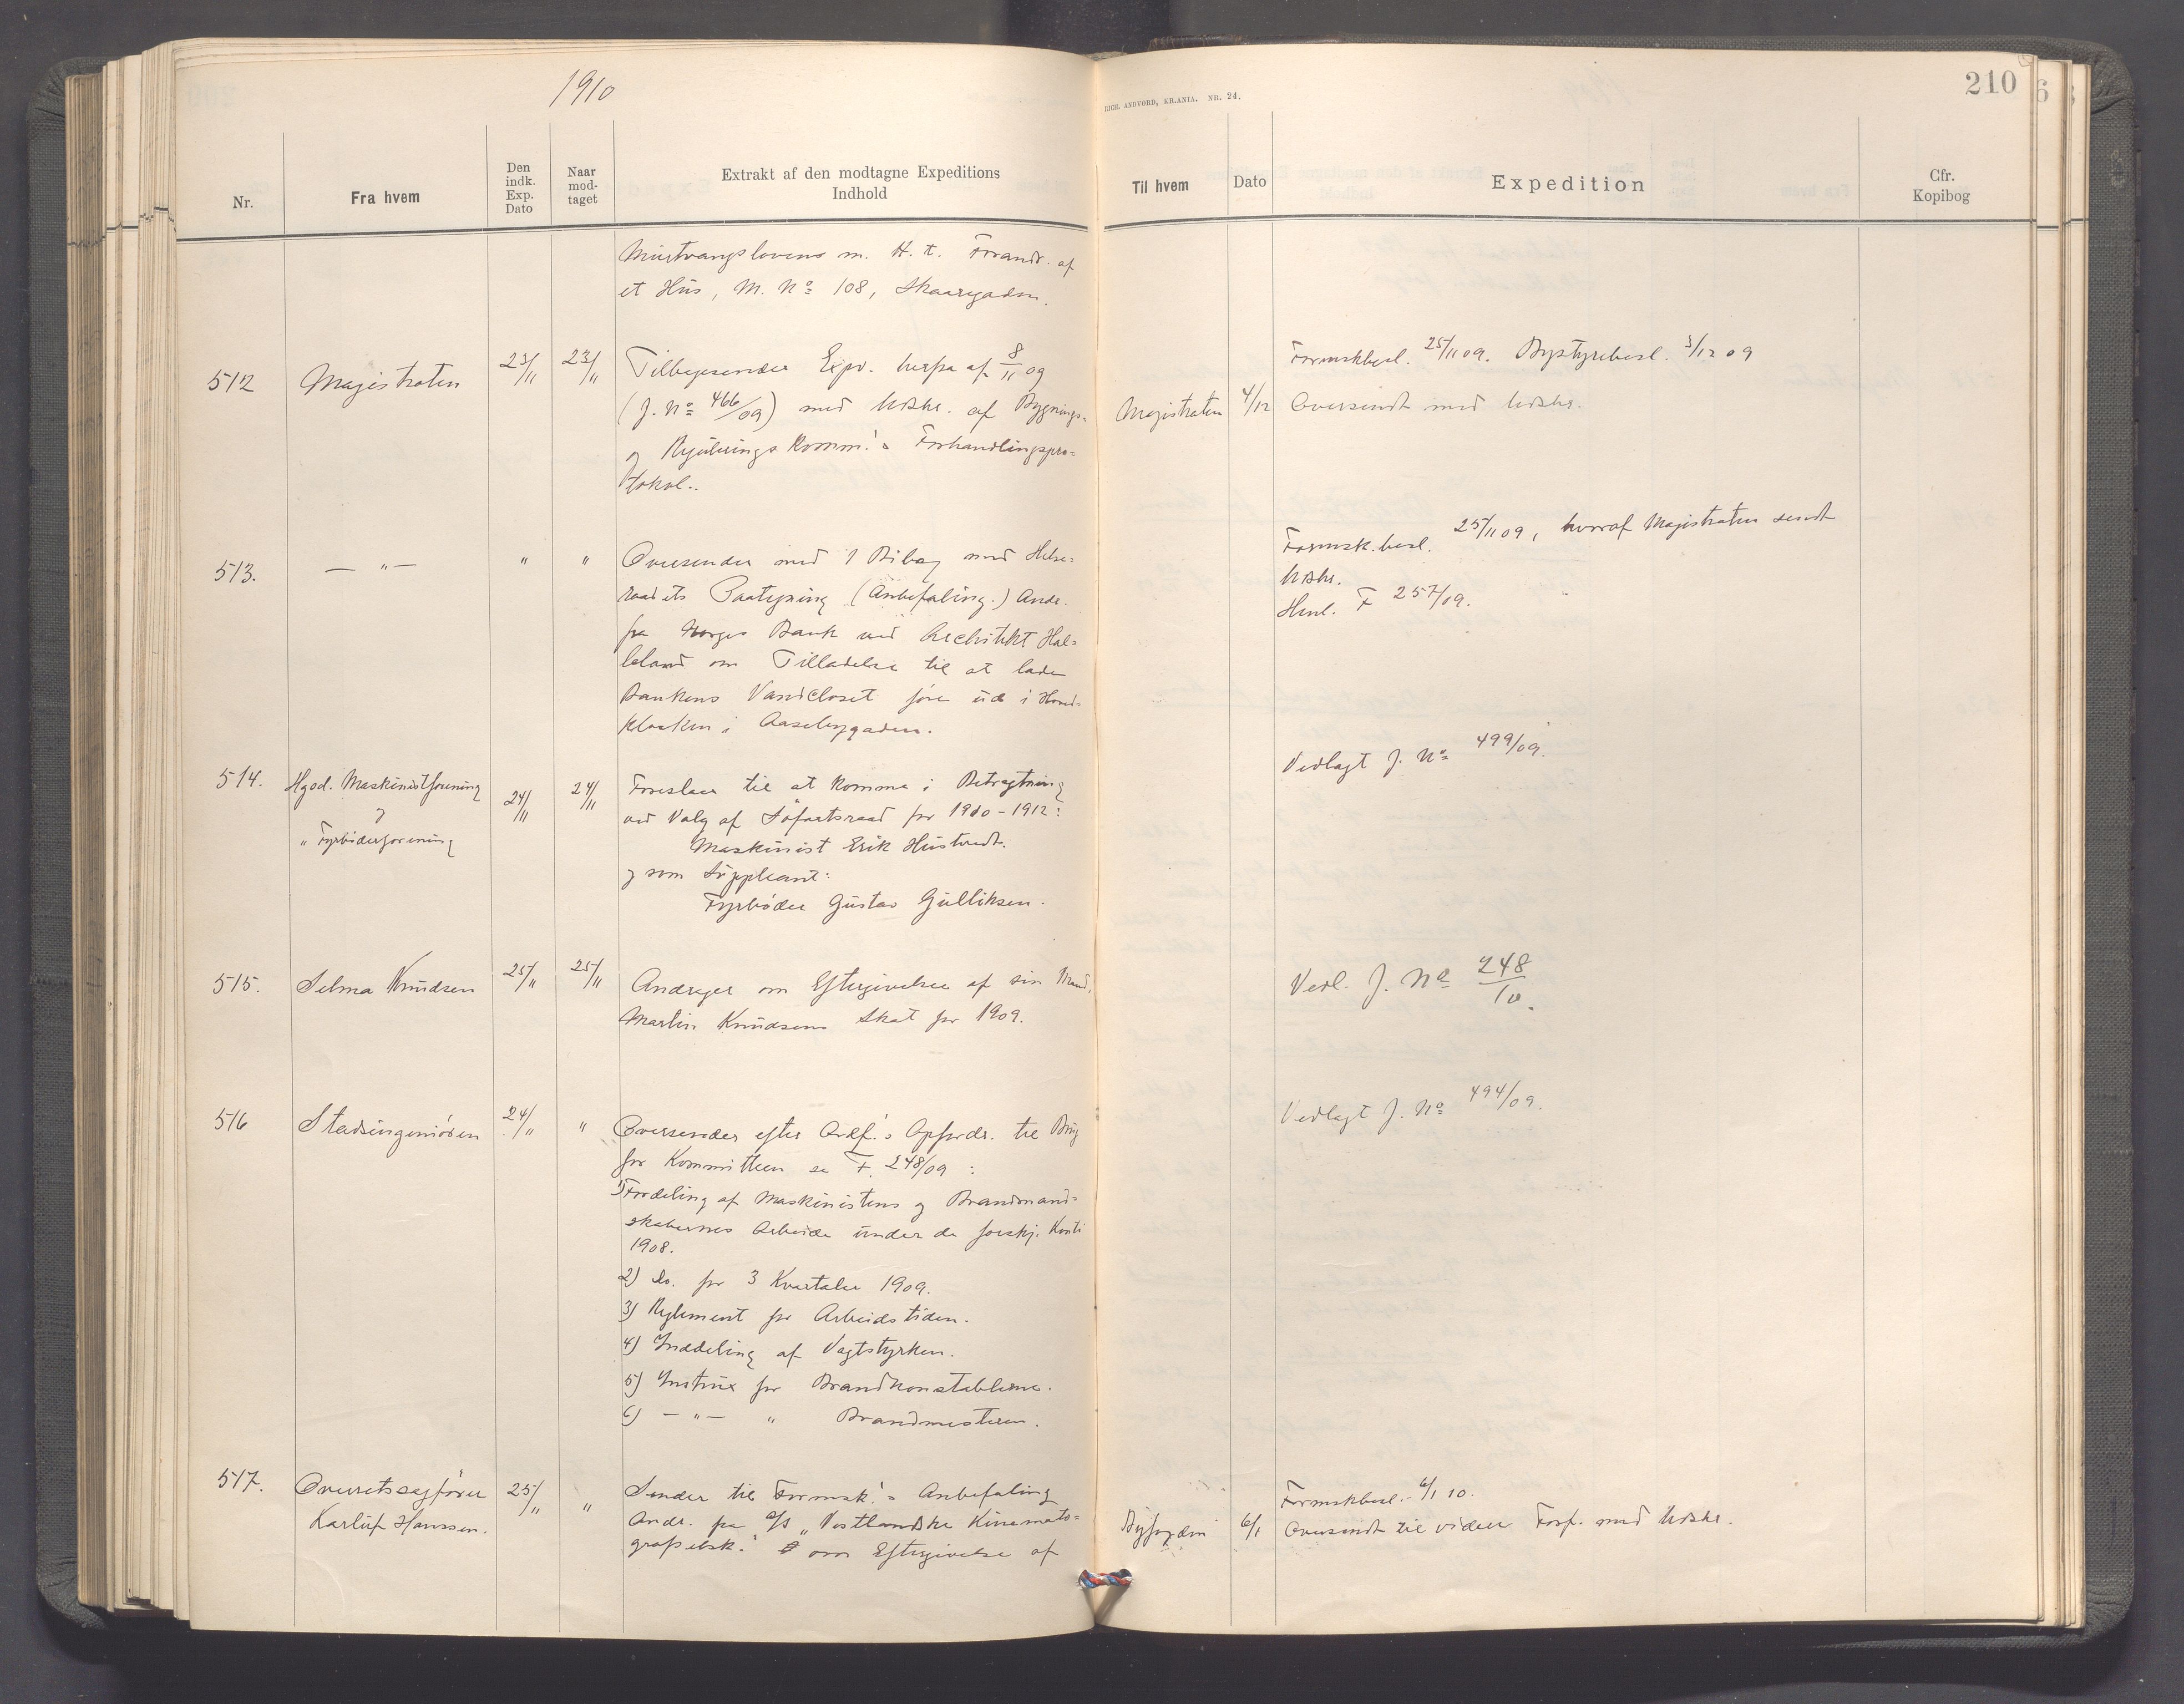 1910
RICH. ANDVORD, KR.ANIA. NR. 24.
210
Nr.
Fra hvem
Den indk. Exp. Dato
Naar mod- taget
Extrakt af den modtagne Expeditions Indhold
Til hvem
Dato
Expedition
Cfr. Kopibog
Murtvangslovens m. H. t. Forandr. af
et Hus, M. No 108, Skaaregaden.
512 Magistraten 23/11 23/11 Tilbagesender Exp. herfra af 8/11 09
(J. No 466/09) med Udskr. af Bygnings-
og Reguleringskomm.'s Forhandlingspro-
tokol..
Formskbesl. 25/11 09. Bystyrebesl. 3/12 09
Magistraten 4/12 Oversendt med Udskr.
513. — " — " " Oversender med 1 Bilag med Helse-
raadets Paategning (Anbefaling.) Andr.
fra Norges Bank ved Architekt Hal-
leland om Tilladelse til at lade
Bankens Vandcloset føre ud i Hoved-
kloaken i Aasebygaden.
Formsk.besl. 25/11 09, hvoraf Magistraten sendt
Udskr.
Henl. F 257/09.
514. Hgsd. Maskinistforening
og
" Fyrbøderforening
24/11 24/11 Foreslaar til at komme i Betragtning
ved Valg af Søfartsraad for 1910-1912:
Maskinist Erik Hustvedt.
og som Suppleant:
Fyrbøder Gustav Gulliksen.
Vedlagt J. No 499/09.
515. Selma Knudsen 25/11 25/11 Andrager om Eftergivelse af sin Mand,
Martin Knudsens Skat for 1909.
Vedl. J. No 248/10.
516 Stadsingeniøren 24/11 " Oversender efter Ordf.'s Opfordr. til Brug
for Kommitteen se F. 248/09 :
1) Fordeling af Maskinistens og Brandmand-
skabernes Arbeide under de forskj. Konti
1908.
2) Do. for 3 Kvartaler 1909.
3) Reglement for Arbeidstiden.
4) Inddeling af Vagtstyrken.
5) Instrux for Brandkonstablerne.
6) — " — " Brandmesteren.
Vedlagt J. No 494/09.
517. Overretssagfører
Karluf Hanssen.
25/11 " Sender til Formsk.'s Anbefaling
Andr. fra A/S "Vestlandske Kinemato-
grafselsk." om Eftergivelse af
Formskbesl. 6/1 10.
Byfogden 6/1 Oversendt til videre Forf. med Udskr.